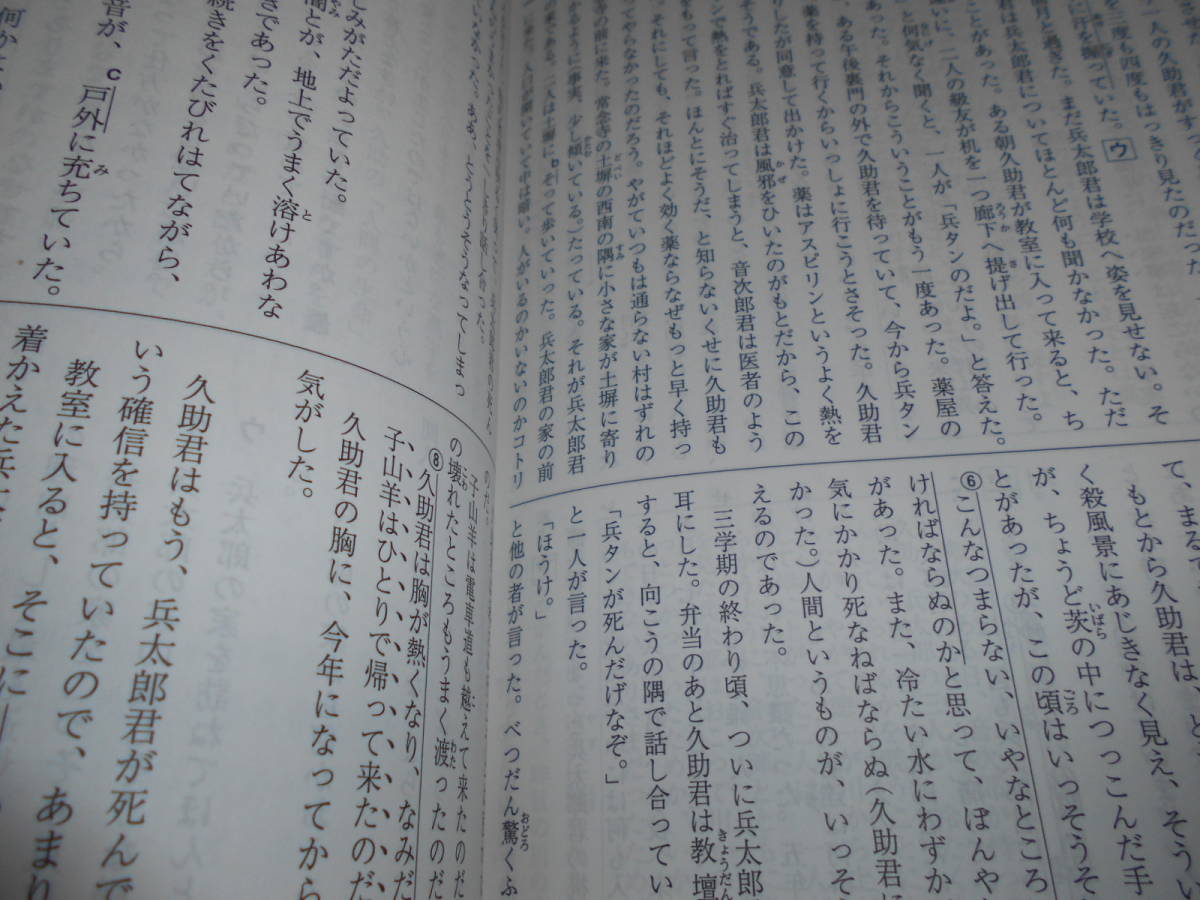 一人の久助君がす
を三度も四度もはっきり見たのだった
っていた。ウ
月と過ぎた。まだ兵太郎君は学校へ姿を見せない。そ
君は兵太郎君についてほとんど何も聞かなかった。ただ
ことがあった。ある朝久助君が教室に入って来ると、ち
に、二人の級友が机を一つ廊下へ提げ出して行った。
と何気なく聞くと、一人が「兵タンのだよ。」と答えた。
あった。それからこういうことがもう一度あった。薬屋の
、ある午後裏門の外で久助君を待っていて、今から兵タン
薬を持って行くからいっしょに行こうとさそった。久助君
りしたが同意して出かけた。薬はアスピリンというよく熱を
そうである。兵太郎君は風邪をひいたのがもとだから、この
ンで熱をとればすぐ治ってしまうと、音次郎君は医者のよう
もって言った。ほんとにそうだ、と知らないくせに久助君も
それにしても、それほどよく効く薬ならなぜもっと早く持っ
てやらなかったのだろう。やがていつもは通らない村はずれの
の前に来た。常念寺の土塀の西南の隅に小さな家が土塀に寄り
かるように(事実、少し傾いている。)たっている。それが兵太郎君
の家である。二人は土塀にbそって歩いていった。兵太郎君の家の前
来た。入口が開いていて中は暗い。人がいるのかいないのかコトリ
て、まるで、
もとから久助君は、ど
く殺風景にあじきなく見え、そうい
が、ちょうど茨の中につっこんだ手
とがあったが、この頃はいっそうそ
⑥こんなつまらない、いやなところ
ければならぬのかと思って、ぽんや
があった。また、冷たい水にわずか
気にかかり死なねばならぬ(久助君に
かった。)人間というものが、いっそ
えるのであった。
三学期の終わり頃、ついに兵太郎
耳にした。弁当のあと久助君は教壇
すると、向こうの隅で話し合ってい
「兵タンが死んだげなぞ。」
と一人が言った。
「ほうけ。」
と他の者が言った。べつだん驚くふ
しみがただよっていた。
闇とが、地上でうまく溶けあわな
きであった。
続きをくたびれはてながら、
音が、c戸外に充ちていた。
何か
子山羊は電車道も越えて来たのだ
の壊れたところもうまく渡ったのだ
⑧久助君は胸が熱くなり、なみだ
子山羊はひとりで帰って来たのだ
久助君の胸に、今年になってから
気がした。
久助君はもう、兵太郎君が死んで
いう確信を持っていたので、あまり
教室に入ると、そこに
着かえた兵